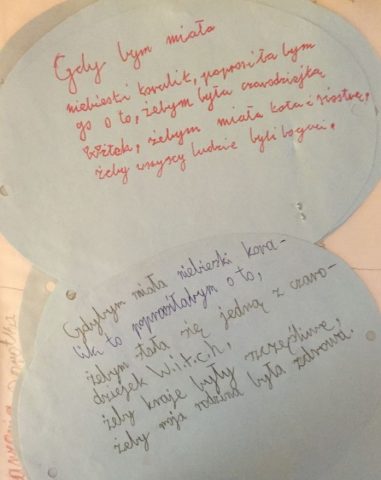 Gdy bym miała
niebieski koralik, poprosiła bym
go o to, żebym była czarodziejką
Witch, żebym miała kota i siostrę,
żeby wszyscy ludzie byli bogaci,
Gdybym miała niebieski kora-
lik to poprosiłabym o to,
żebym stała się jedną z czaro-
dziejek W.i.t.c.h,
żeby kraje były szczęśliwe,
żeby moja rodzina była zdrowa.